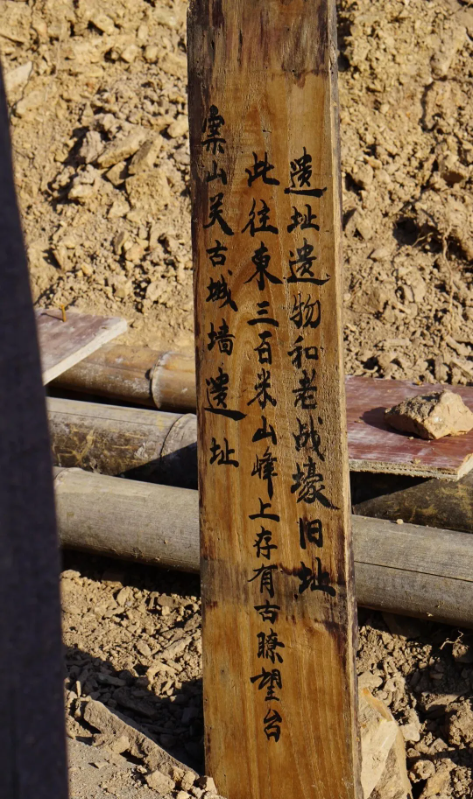 山关古城墙遗址
此往東三百米山峰上存有古瞭望台
遗址遗物和老战壕旧址